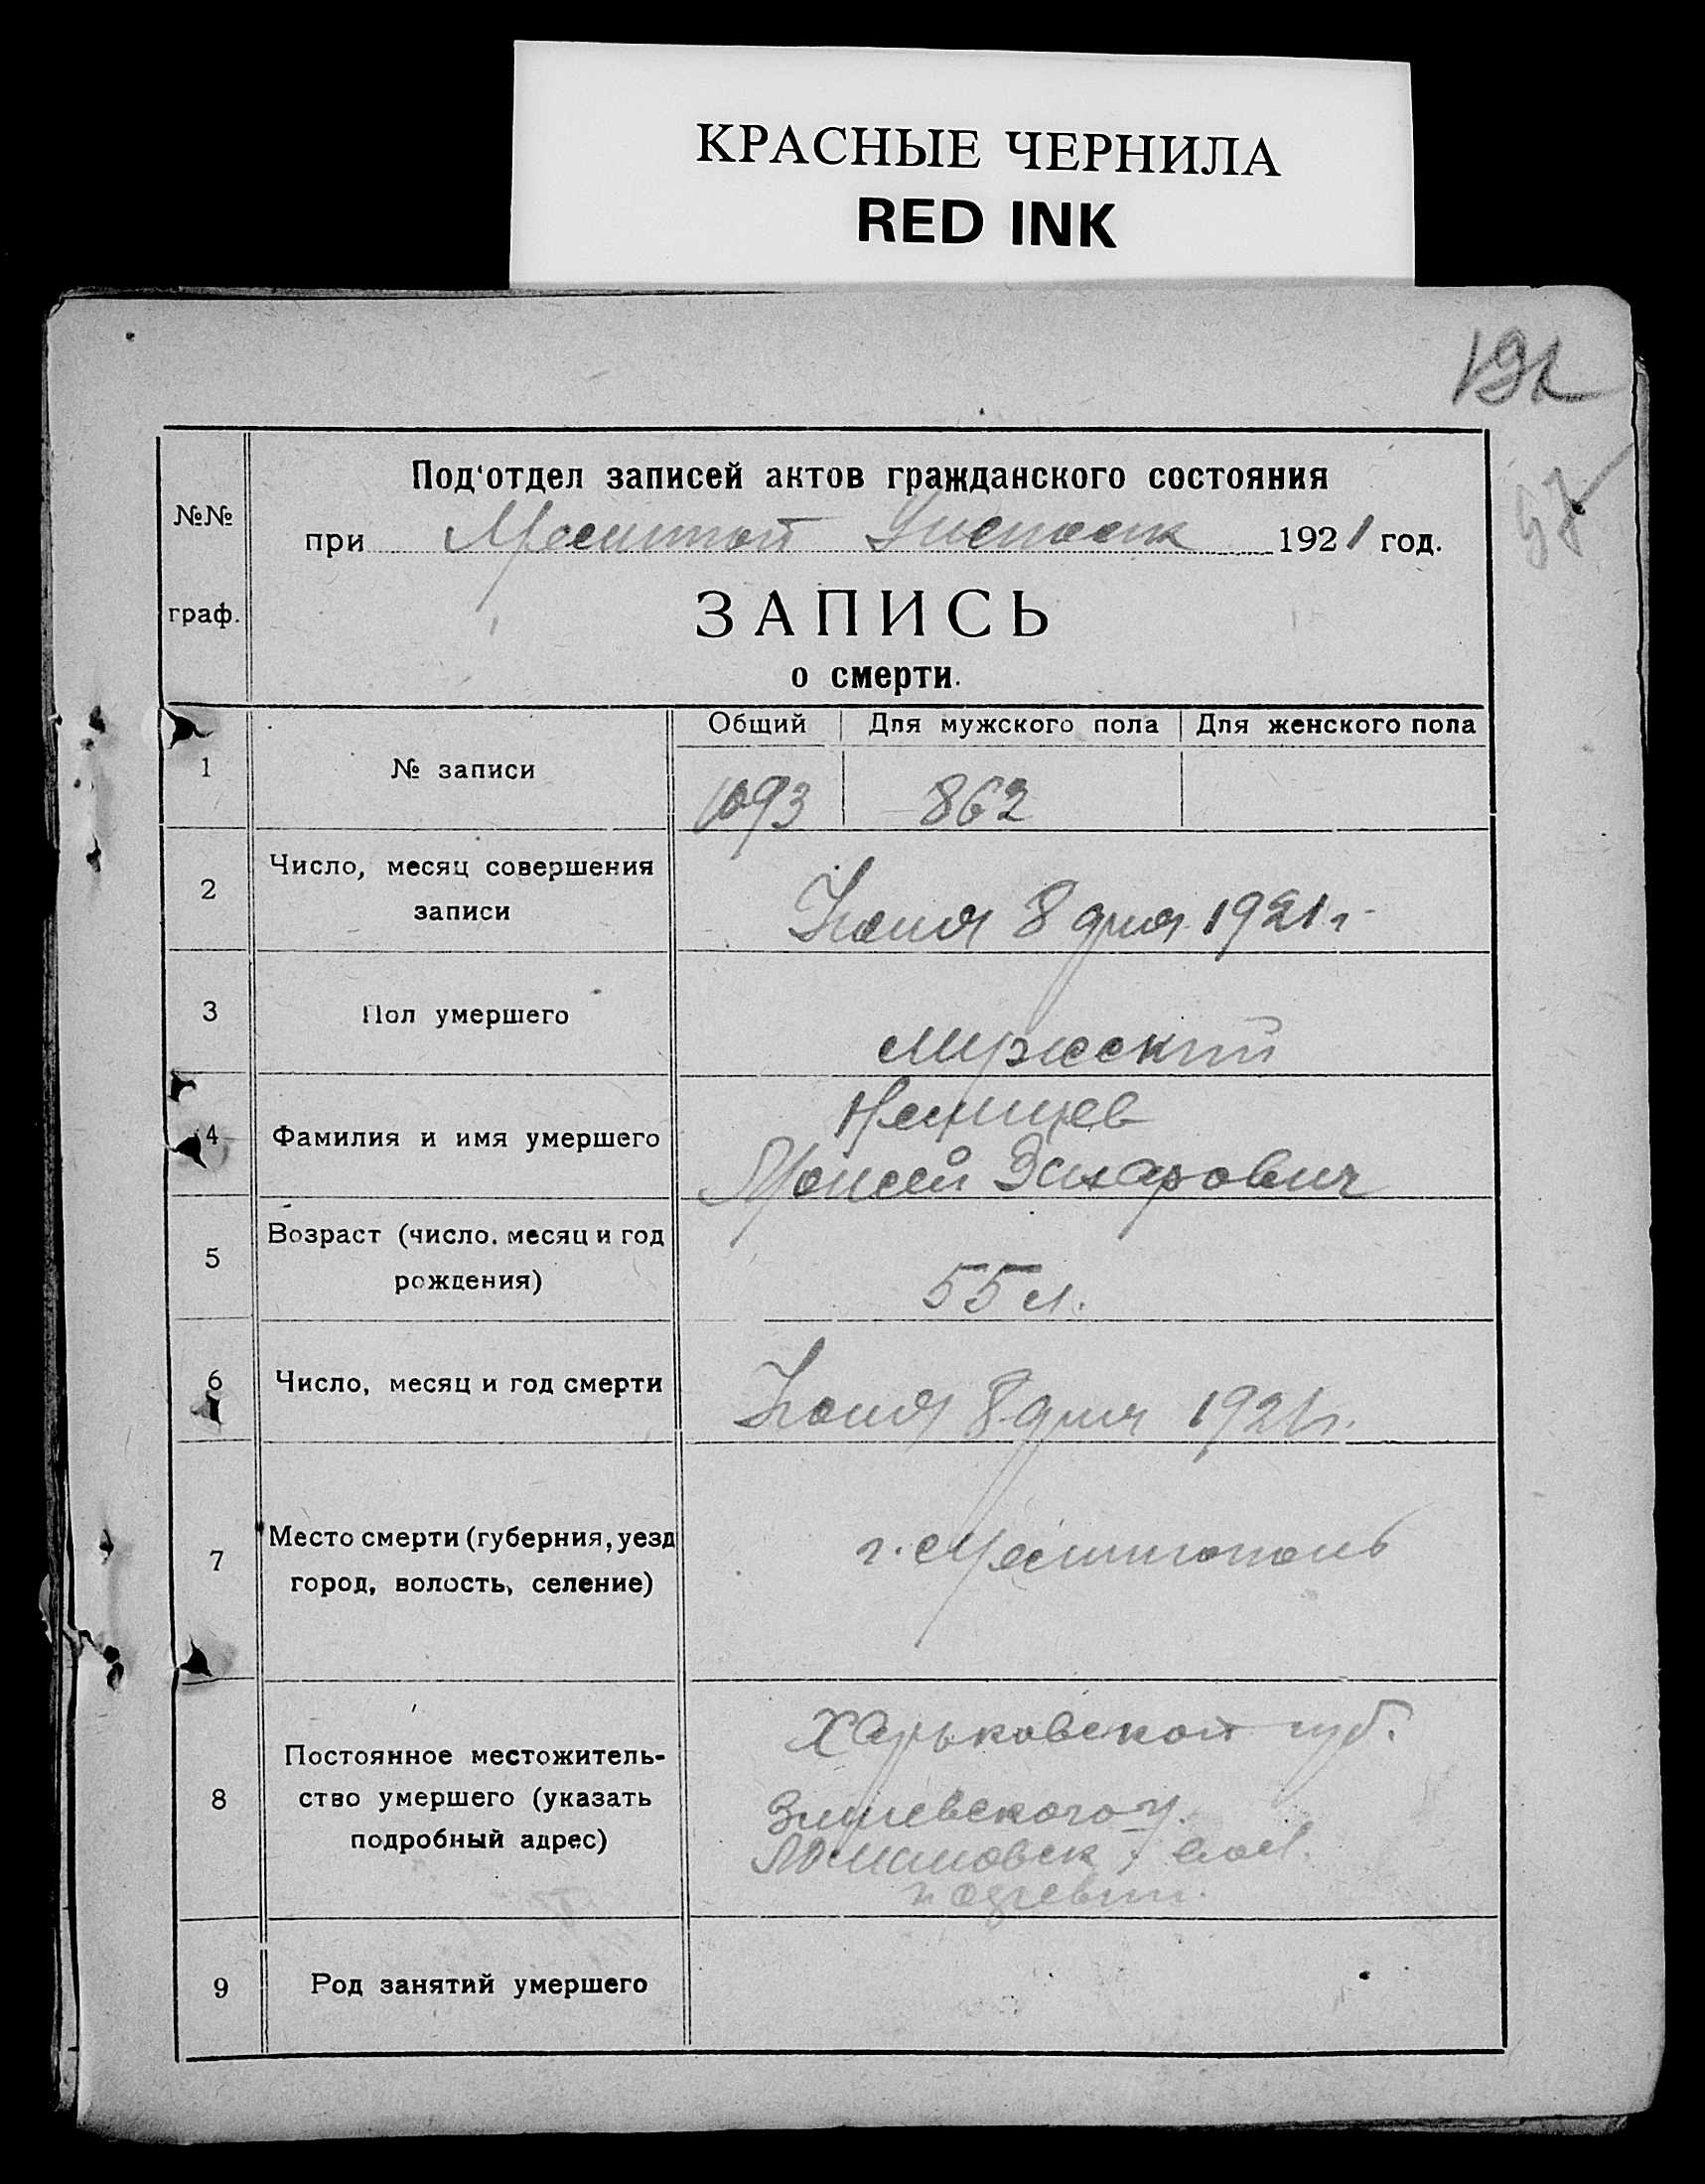 КРАСНЫЕ ЧЕРНИЛА
RED INK
192
57
Под'отдел записей актов гражданского состояния
№№
граф.
при Мелитоп 1921 год.
ЗАПИСЬ
о смерти.
Общий Для мужского пола Для женского пола
1 № записи 1093 862
2 Число, месяц совершения
записи
Июня 8 дня 1921 г
3 Пол умершего мужеский
4 Фамилия и имя умершего
Моисей Захарович
5 Возраст (число, месяц и год
рождения)
55 л.
6 Число, месяц и год смерти Июня 8 дня 1921 г.
7 Место смерти (губерния, уезд
город, волость, селение)
г. Мелитополь
8 Постоянное местожитель-
ство умершего (указать
подробный адрес)
Харьковской губ.
Змиевского у.
9 Род занятий умершего